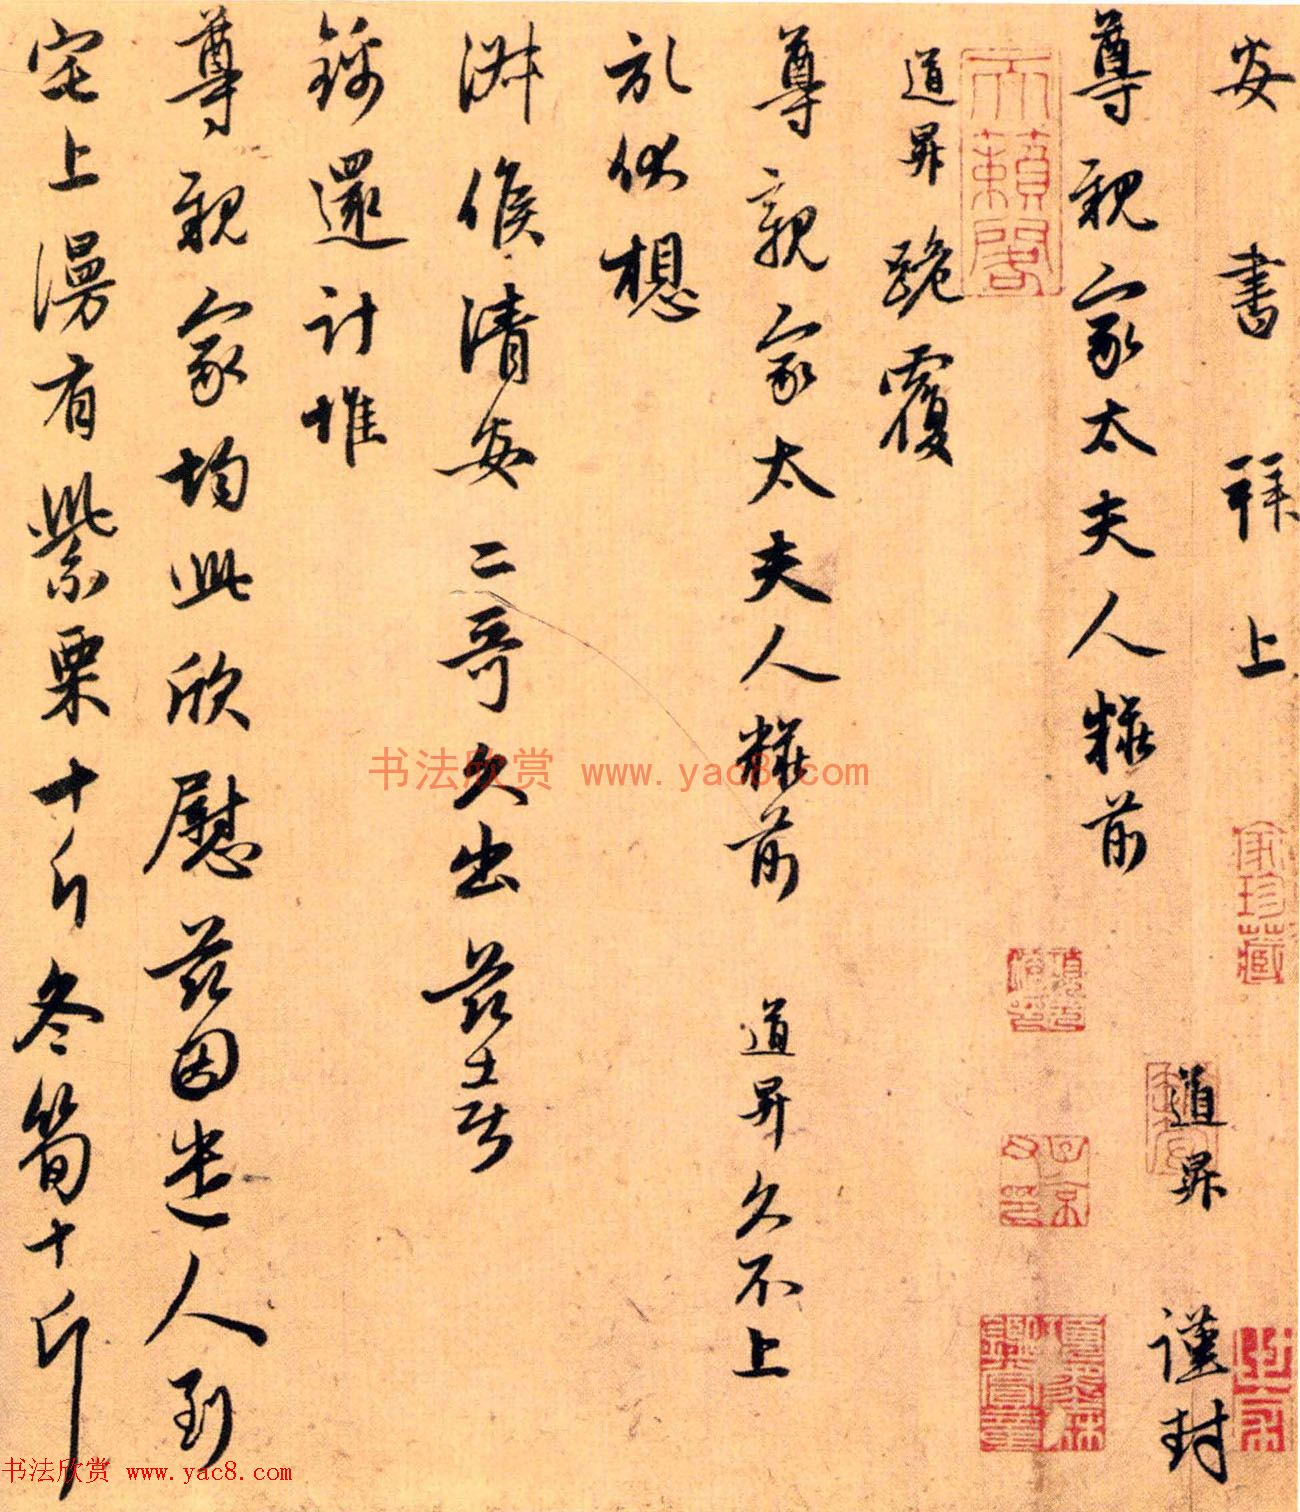 安書拜上
道昇謹封
尊親家太夫人粧前
道昇跪覆
尊親家太夫人粧前 道昇久不上
狀伏想
淑候清安二哥久出茲喜
錦還計惟
尊親家均此欣慰茲因遣人到
宅上漫有紫栗十斤冬筍十斤
天籟閣
家珍藏
书法欣赏 www.yac8.com
书法欣赏 www.yac8.com